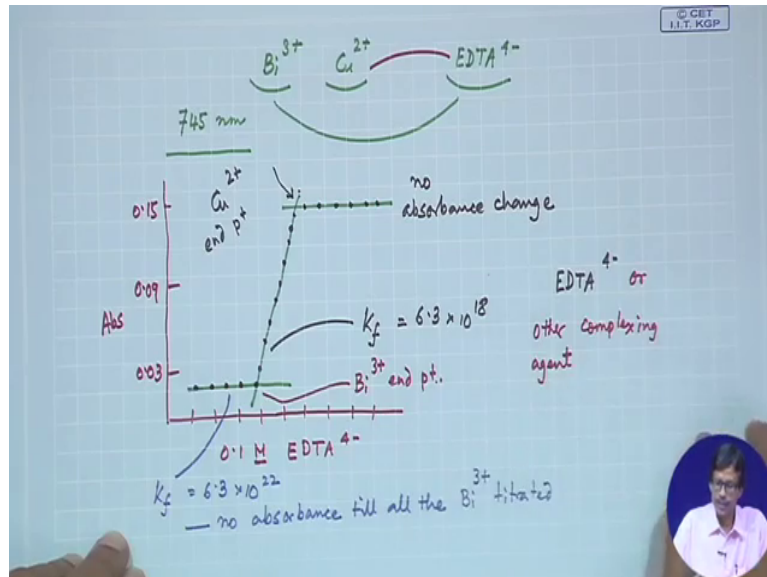 © CET
I.I.T. KGP
Bi³⁺ Cu²⁺ EDTA⁴⁻
745 nm
Cu²⁺
end pt
no
absorbance change
0.15
0.09
0.03
Abs
K_f = 6.3 × 10¹⁸
Bi³⁺ end pt.
EDTA⁴⁻ or
other complexing
agent
0.1 M EDTA⁴⁻
K_f = 6.3 × 10²²
— no absorbance till all the Bi³⁺ titrated